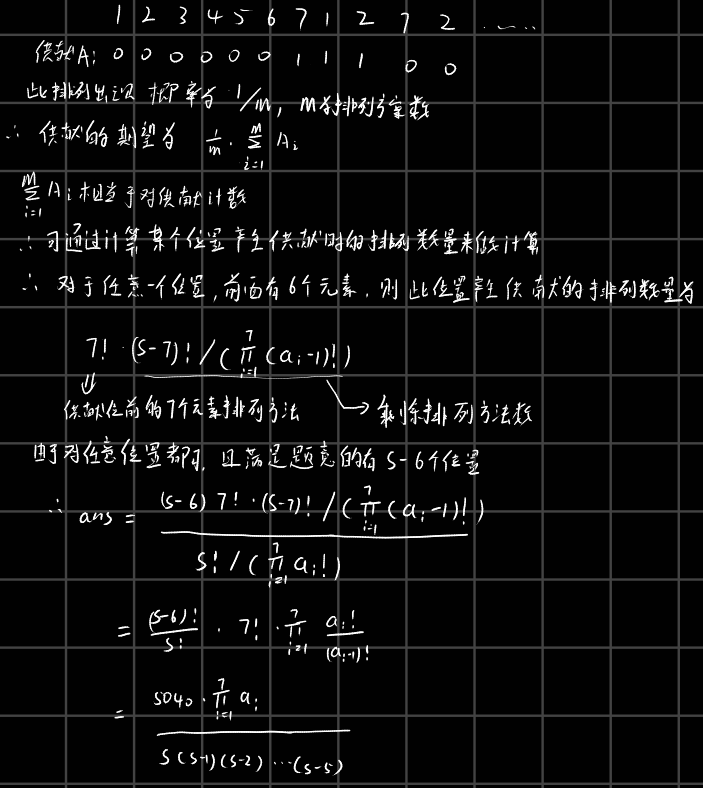 1 2 3 4 5 6 7 1 2 7 2 ......
供献A: 0 0 0 0 0 0 1 1 1 0 0
此排列出现 概率为 1/m, m为排列方案数
∴ 供献的期望为 1/m · ∑_{i=1}^{m} A_i
∑_{i=1}^{m} A_i 相当于对供献计数
∴ 可通过计算某个位置产生供献时的排列数量来做计算
∴ 对于任意一个位置, 前面有6个元素, 则此位置产生供献的排列数量为
7! · (S-7)! / (∏_{i=1}^{7} (a_i-1)!)
供献位前的7个元素排列方法 → 剩余排列方法数
由于对任意位置都可, 且满足题意的有 S-6个位置
∴ ans = (S-6) 7! · (S-7)! / (∏_{i=1}^{7} (a_i-1)!) / S! / (∏_{i=1}^{7} a_i!)
= (S-6)!/S! · 7! · ∏_{i=1}^{7} a_i!/(a_i-1)!
= 5040 · ∏_{i=1}^{7} a_i / S(S-1)(S-2)···(S-5)